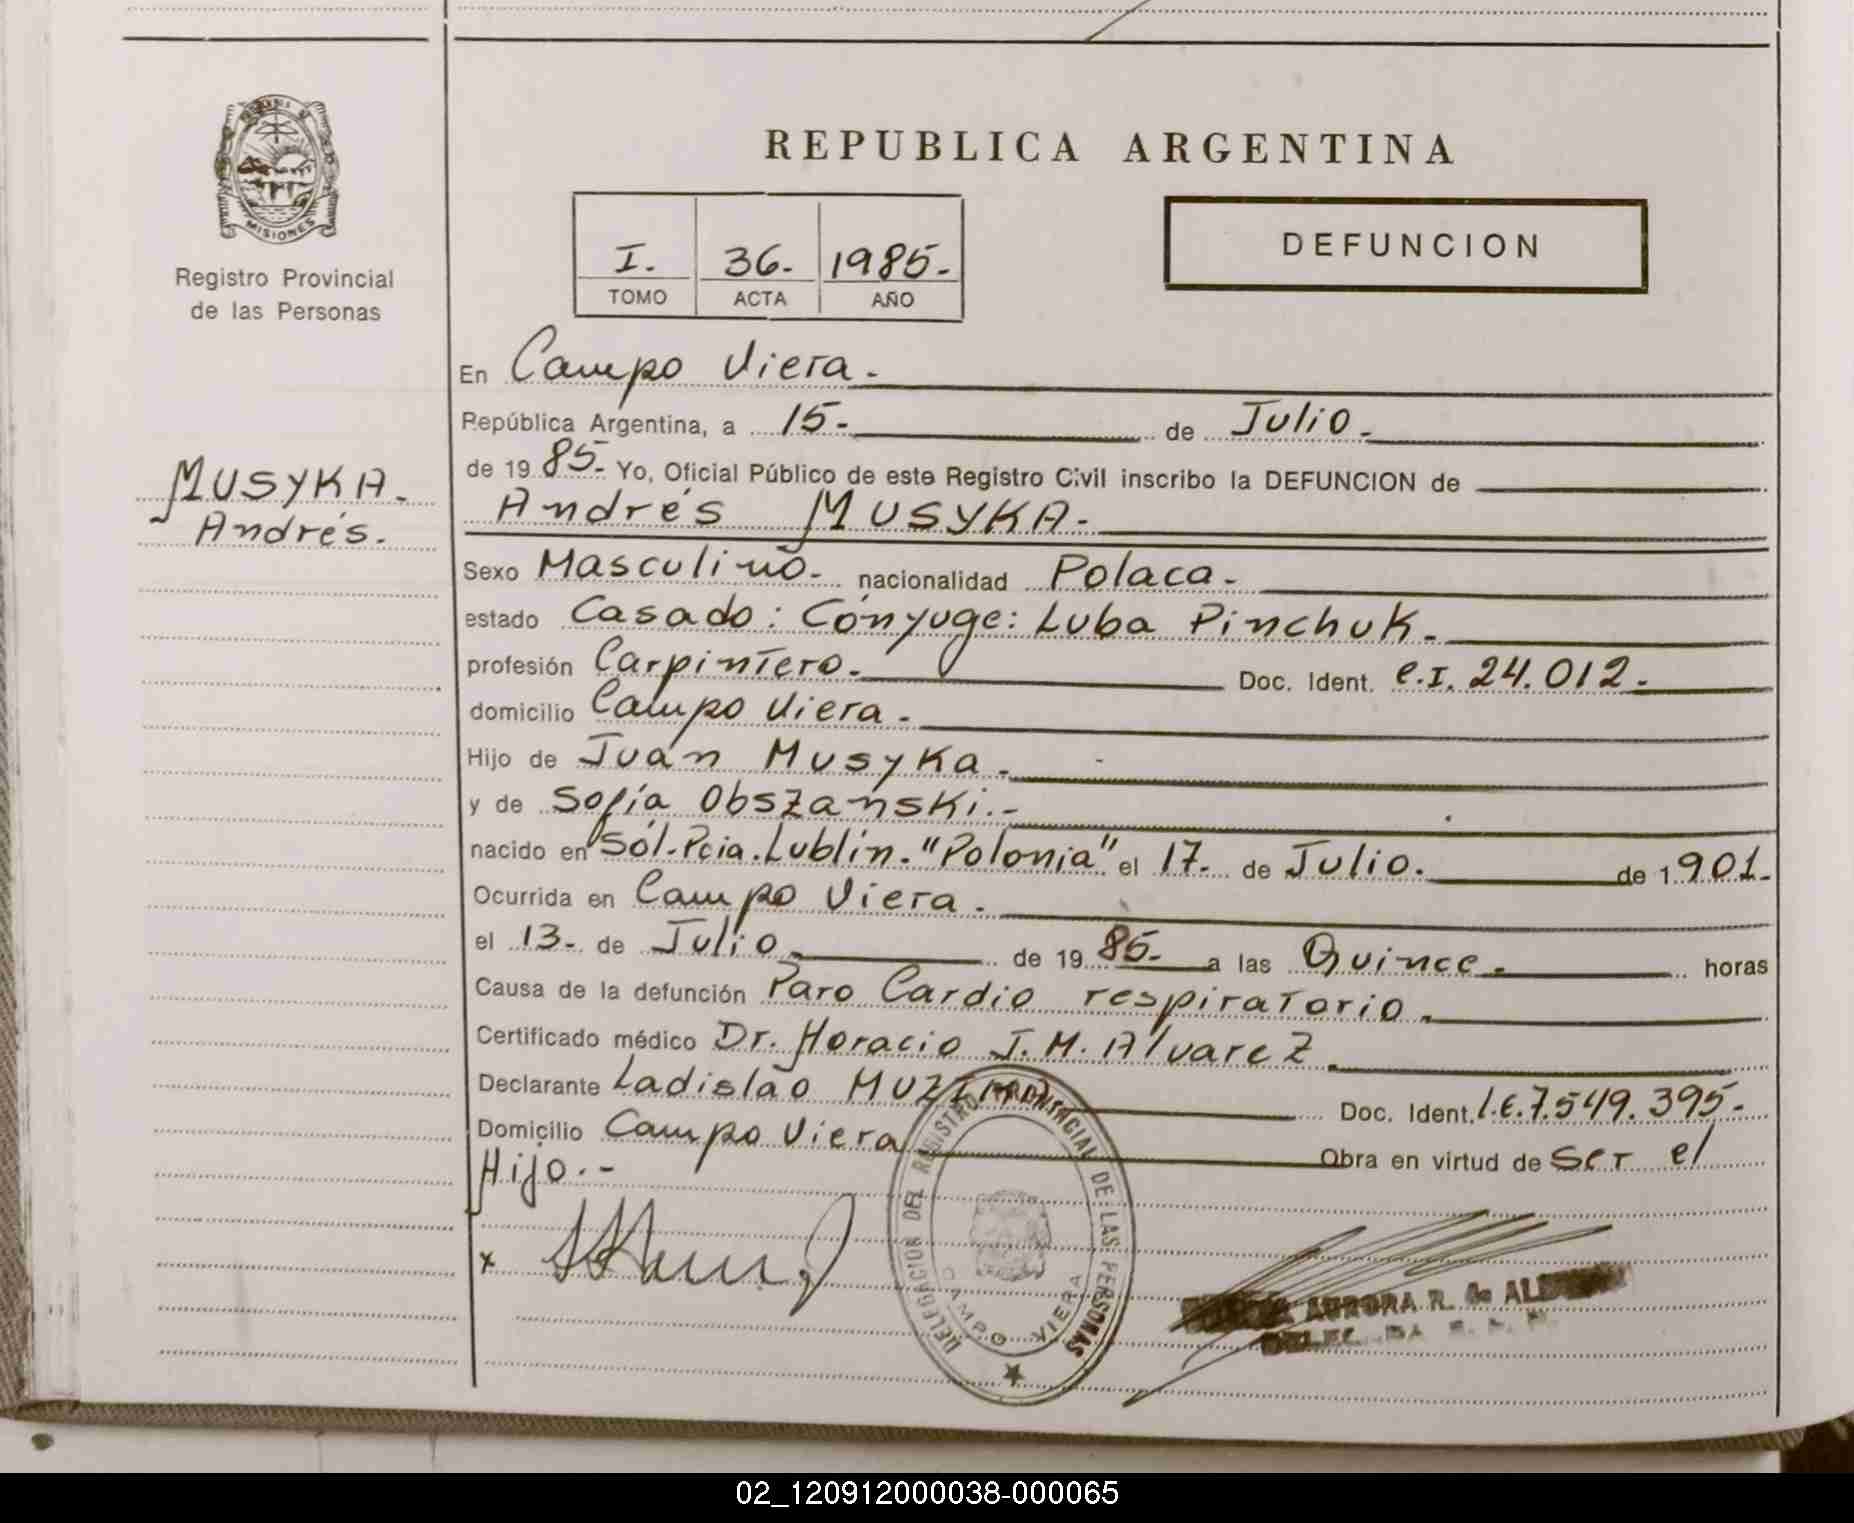 MISIONES
Registro Provincial
de las Personas
MUSYKA.
Andrés.
REPUBLICA ARGENTINA
I. 36. 1985.
TOMO ACTA AÑO
DEFUNCION
En Campo Viera.
República Argentina, a 15. de Julio.
de 19 85. Yo, Oficial Público de este Registro Civil inscribo la DEFUNCION de
Andrés MUSYKA.
Sexo Masculino. nacionalidad Polaca.
estado Casado: Cónyuge: Luba Pinchuk.
profesión Carpintero. Doc. Ident. C.I. 24.012.
domicilio Campo Viera.
Hijo de Juan Musyka.
y de Sofía Obszanski.-
nacido en Sól-Pcia.Lublín."Polonia" el 17. de Julio. de 1.901.
Ocurrida en Campo Viera.
el 13. de Julio. de 19 85. a las Quince. horas
Causa de la defunción Paro Cardio respiratorio.
Certificado médico Dr. Horacio J. M. Alvarez
Declarante Ladislao Doc. Ident. L.E.7.549.395.
Domicilio Campo Viera Obra en virtud de Ser el
Hijo.-
x
DELEGACION DEL REGISTRO PROVINCIAL DE LAS PERSONAS
CAMPO VIERA
AURORA R. de
02_120912000038-000065